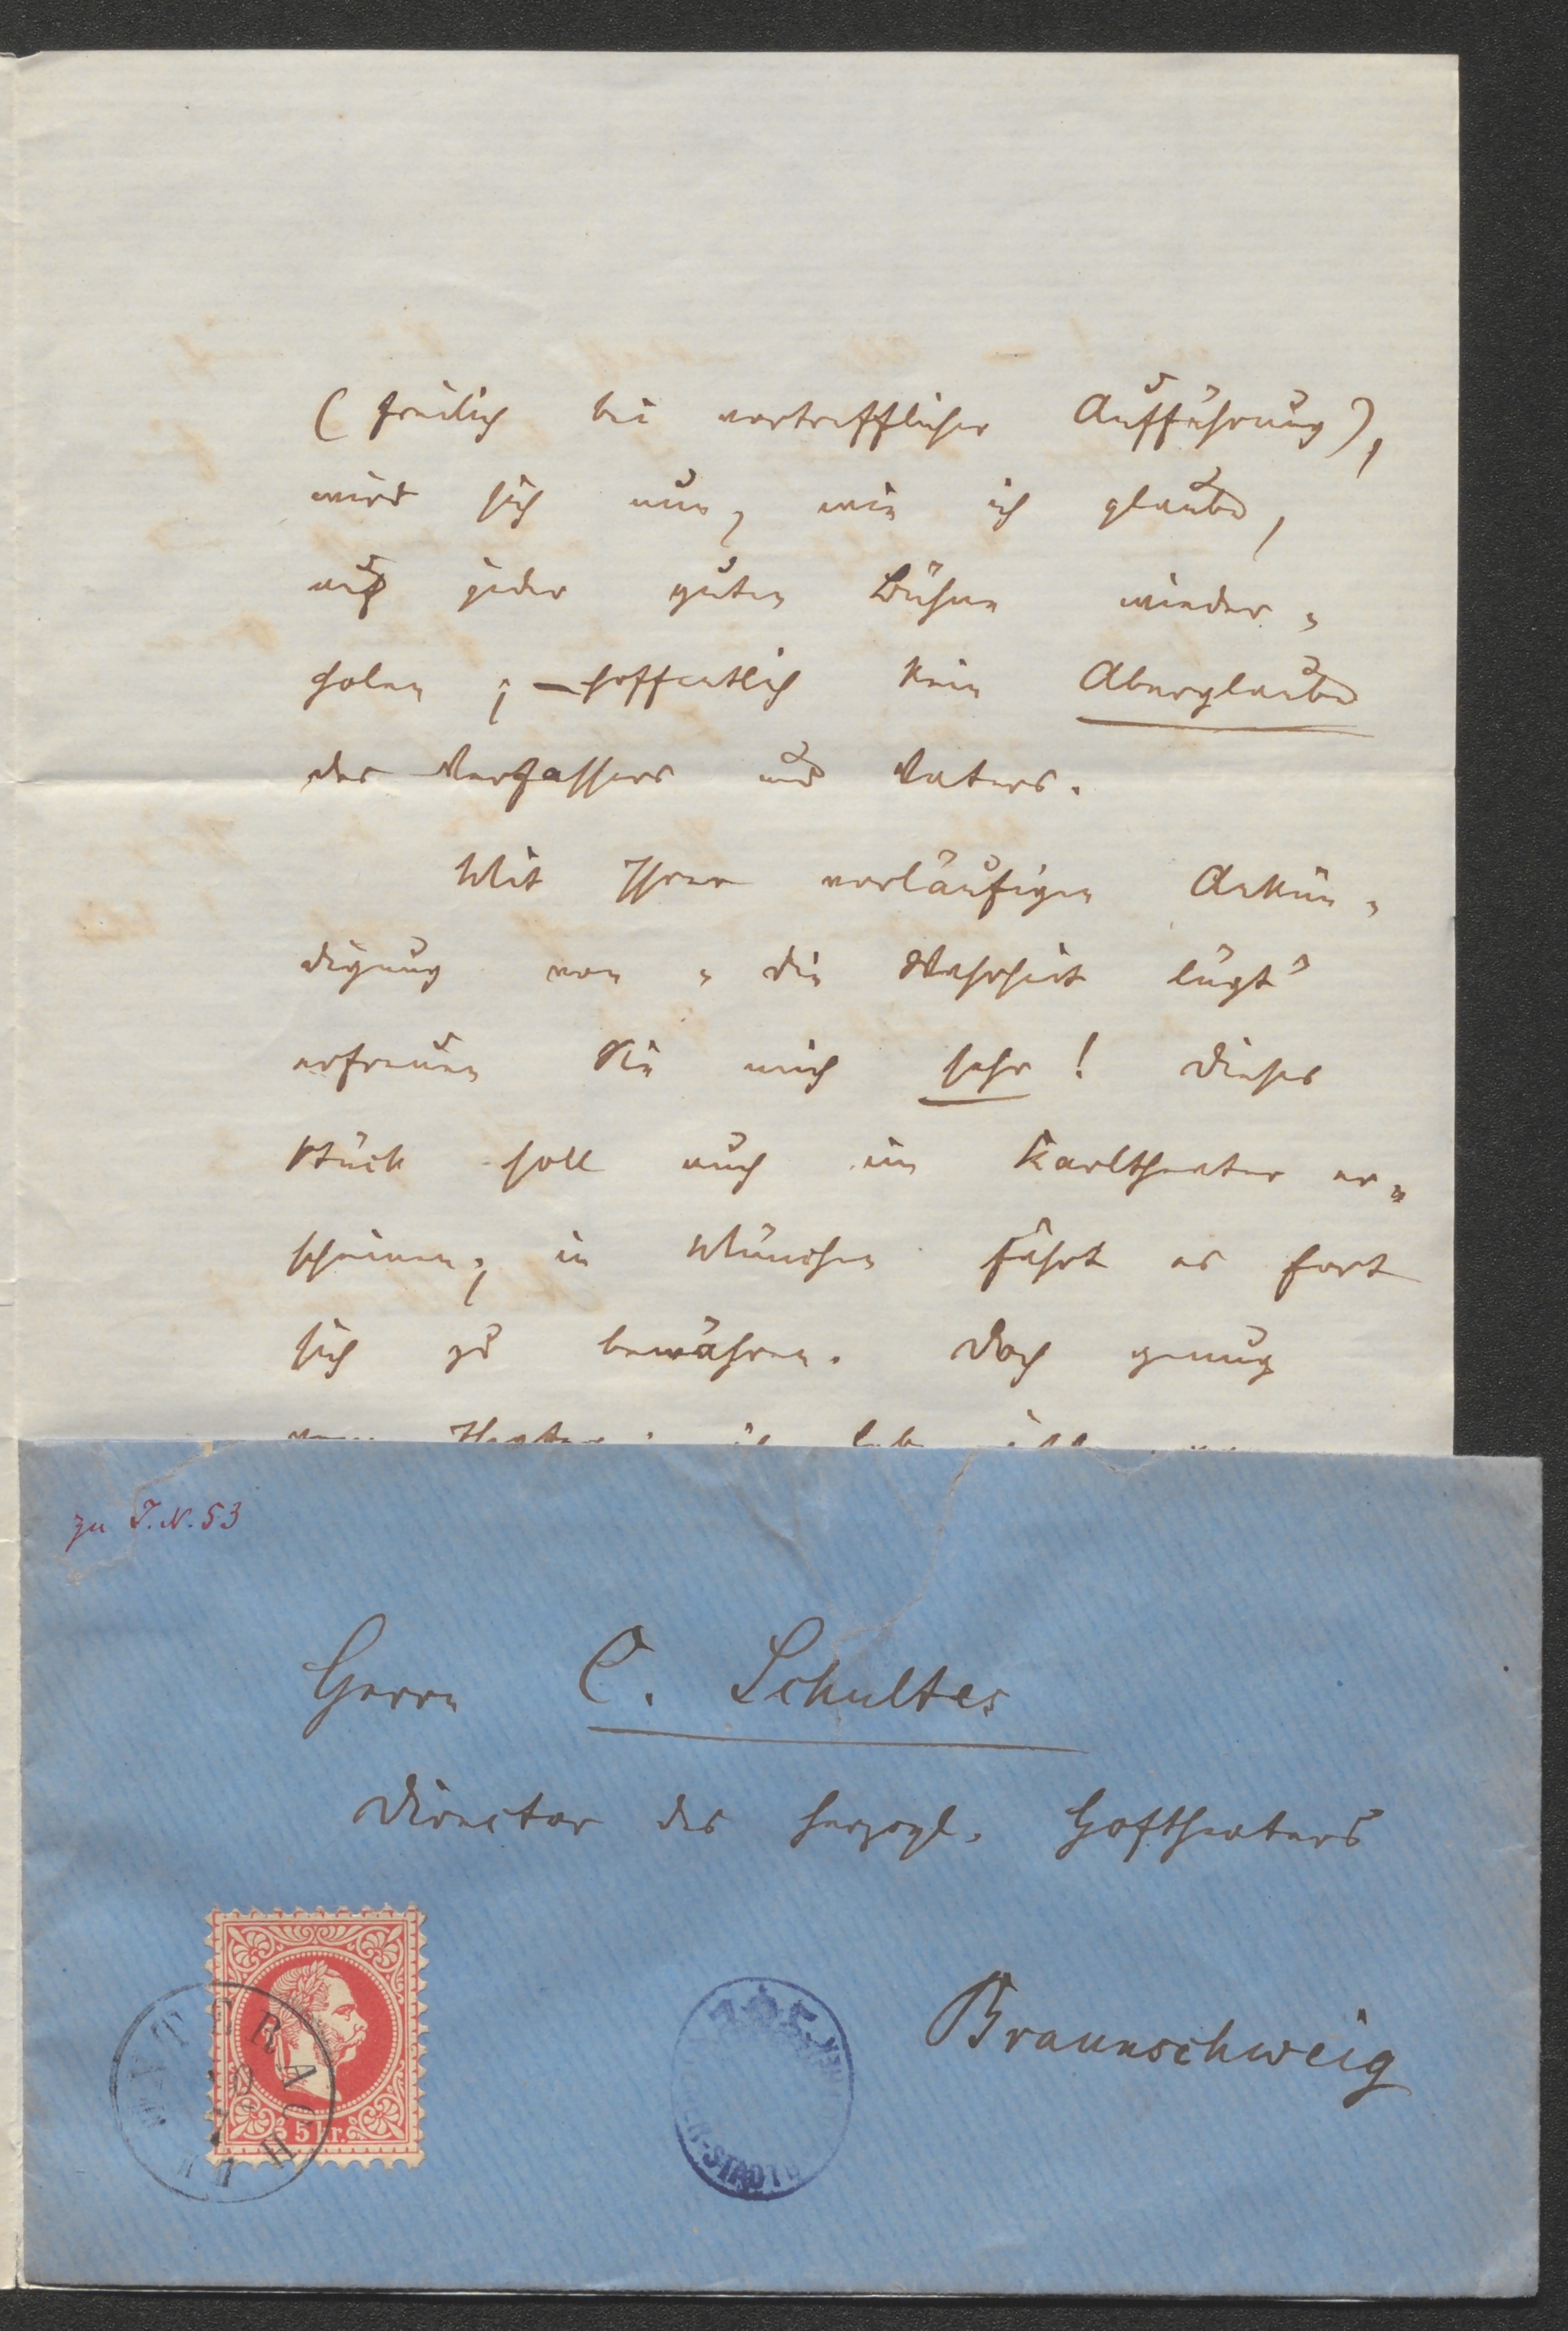 (freilich bei vortrefflicher Aufführung),
wird sich nun, wie ich glaube,
auf jeder guten Bühne wieder-
holen; – hoffentlich kein Aberglaube
des Verfassers und Vaters.
Mit Ihrer vorläufigen Ankün-
digung von „die Wahrheit lügt“
erfreuen Sie mich sehr! Dieses
Stück soll auch im Karltheater er-
scheinen; in München fährt es fort
sich zu bewähren. Doch genug
zu I.N. 53
Herrn C. Schultes
Director des herzogl. Hoftheaters
Braunschweig
5 kr.
MITTERBACH